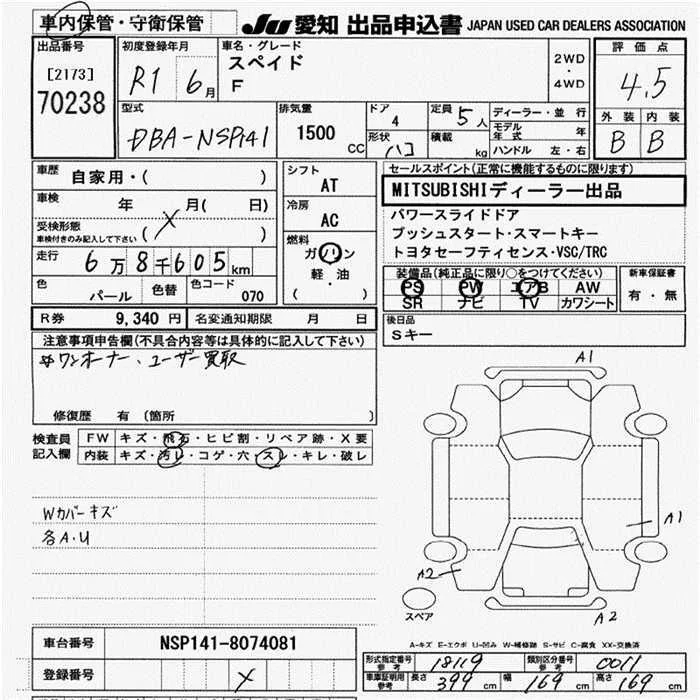 車内保管・守衛保管 JU 愛知 出品申込書 JAPAN USED CAR DEALERS ASSOCIATION
出品番号 初度登録年月 車名・グレード 評価点
[2173] R1 6月 スペイド 2WD
70238 F ・
4WD 4.5
型式 排気量 ドア 定員 ディーラー・並行 外装 内装
DBA-NSP141 1500 CC 4 5人 モデル年式 年 B B
形状 ハコ 積載 kg ハンドル 左・右
車歴 自家用・( ) シフト AT セールスポイント(正常に機能するものに限ります)
MITSUBISHIディーラー出品
車検 年 月( 日) 冷房 AC パワースライドドア
受検形態 ( X ) プッシュスタート・スマートキー
車検付きのみ記入して下さい 燃料 トヨタセーフティセンス・VSC/TRC
走行 6万8千605km ガソリン
軽・油
( )
装備品(純正品に限り○をつけてください) 新車保証書
PS PW エアB AW 有・無
SR ナビ TV カワシート
色 パール 色替 色コード 070
R券 9,340 円 名変通知期限 月 日 後日品
Sキー
注意事項申告欄(不具合内容等は具体的に記入して下さい)
※ワンオーナー、ユーザー買取
修復歴 有 (箇所 )
検査員 FW キズ・飛石・ヒビ割・リペア跡・X要
記入欄 内装 キズ・汚レ・コゲ・穴・スレ・キレ・破レ
Wカバーキズ
各A・U
A1
A1
A2
A2
スペア
A-キズ E-エクボ U-凹み W-補修跡 S-サビ C-腐食 XX-交換済
車台番号 NSP141-8074081
登録番号 X
形式指定番号 参考 18119 類別区分番号 参考 0011
車庫証明用 参考 長さ 399 cm 幅 169 cm 高さ 169 cm